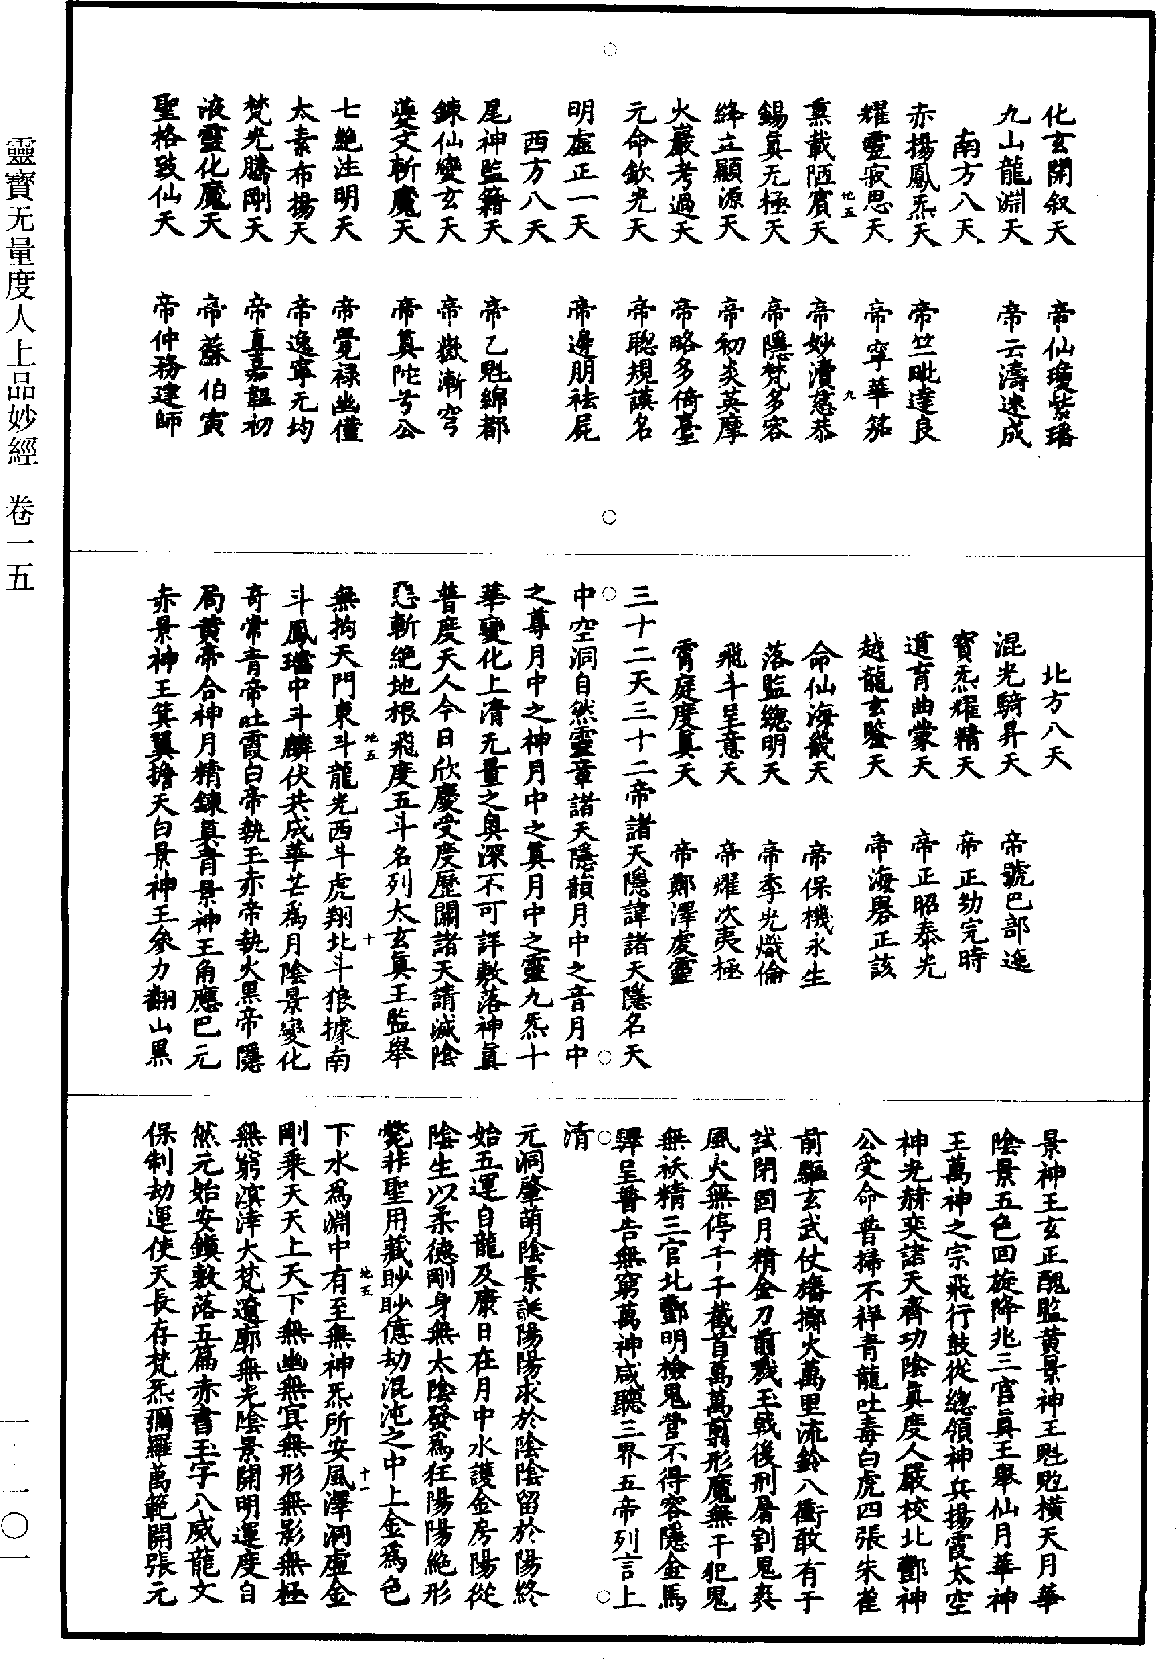 靈寶无量度人上品妙經　卷一五
一·一〇一
化玄開叙天　帝仙瓊紫璠
九山龍淵天　帝云濤迷成
南方八天
赤揚鳳炁天　帝竺毗達良
耀靈寂思天　帝寧華笳
地五　九
熏載陋賓天　帝妙瀆慈恭
錫真无極天　帝隱梵多容
絳立顯源天　帝初炎英摩
火巖考過天　帝略多倚臺
元命欽光天　帝聰規謨名
明虛正一天　帝邊朋袪屍
西方八天
尾神監籍天　帝乙魁綿都
鍊仙變玄天　帝嶽漸穹
㜸文斬魔天　帝箕陀兮公
七絶注明天　帝覺祿幽僮
太素布揚天　帝逸寧元均
梵光騰剛天　帝真嘉韞初
液靈化魔天　帝蘇伯寅
聖格致仙天　帝仲務建師
北方八天
混光騎昇天　帝號巴部逸
寶炁耀精天　帝正劫完時
道育曲蒙天　帝正昭泰光
越龍玄鑒天　帝海礜正該
命仙海毓天　帝保機永生
落監總明天　帝季光熾倫
飛斗呈意天　帝耀次夷極
霄庭度真天　帝鄭澤虔靈
三十二天三十二帝諸天隱諱諸天隱名天
中空洞自然靈章諸天隱韻月中之音月中
之尊月中之神月中之真月中之靈九炁十
華變化上清无量之奥深不可詳敷落神真
普度天人今日欣慶受度歷關諸天請滅陰
惡斬絶地根飛度五斗名列太玄真王監舉
地五　十
無拘天門東斗龍光西斗虎翔北斗狼據南
斗鳳璫中斗麟伏共成華芒爲月陰景變化
奇常青帝吐霞白帝執玉赤帝執火黑帝隱
局黄帝合神月精鍊真青景神王角應巴元
赤景神王箕翼擔天白景神王衆力翻山黑
景神王玄正醜監黄景神王魁䰢橫天月華
陰景五色回旋降兆三官真王舉仙月華神
王萬神之宗飛行鼓從總領神兵揚霞太空
神光赫奕諸天齊功陰真度人嚴校北酆神
公受命普掃不祥青龍吐毒白虎四張朱雀
前驅玄武仗旛擲火萬里流鈴八衝敢有干
試閉固月精金刀前殘玉戟後刑屠割鬼爽
風火無停千千截首萬萬剪形魔無干犯鬼
無袄精三官北酆明檢鬼營不得容隱金馬
驛呈普告無窮萬神咸聽三界五帝列言上
清
元洞肇萌陰景誕陽陽求於陰陰留於陽終
始五運自龍及康日在月中水護金房陽從
陰生以柔德剛身無太陰發爲狂陽陽絶形
斃非聖用藏眇眇億劫混沌之中上金爲色
地五　十一
下水爲淵中有至無神炁所安風澤洞虛金
剛乘天天上天下無幽無冥無形無影無極
無窮溟涬大梵遼廓無光陰景開明運度自
然元始安鎮敷落五篇赤書玉字八威龍文
保制劫運使天長存梵炁彌羅萬範開張元